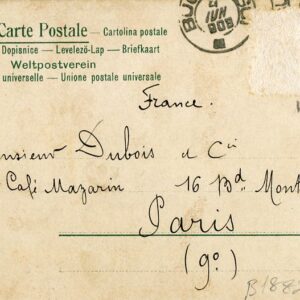 Carte Postale — Cartolina postale
Dopisnice — Levelező-Lap — Briefkaart
Weltpostverein
universelle — Unione postale universale
IUN
905
France.
onsieur Dubois & Cie
Café Mazarin 16 Bd Mont
Paris
(9º)
B188